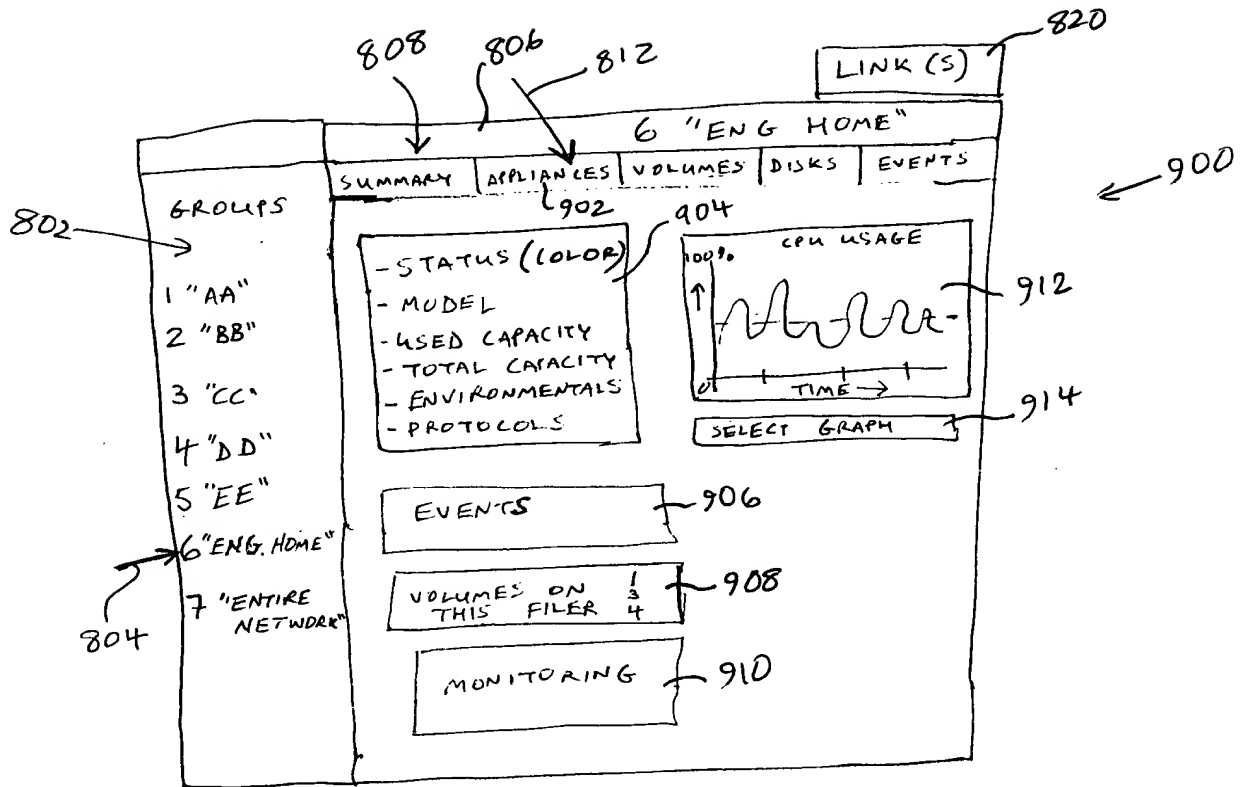 808
806
812
820
LINK (S)
6 "ENG HOME"
SUMMARY
APPLIANCES
VOLUMES
DISKS
EVENTS
900
902
802
GROUPS
1 "AA"
2 "BB"
3 "CC"
4 "DD"
5 "EE"
6 "ENG. HOME"
7 "ENTIRE
NETWORK"
804
904
- STATUS (COLOR)
- MODEL
- USED CAPACITY
- TOTAL CAPACITY
- ENVIRONMENTALS
- PROTOCOLS
CPU USAGE
100%
0
TIME →
912
SELECT GRAPH
914
EVENTS
906
VOLUMES ON
THIS FILER
1
3
4
908
MONITORING
910